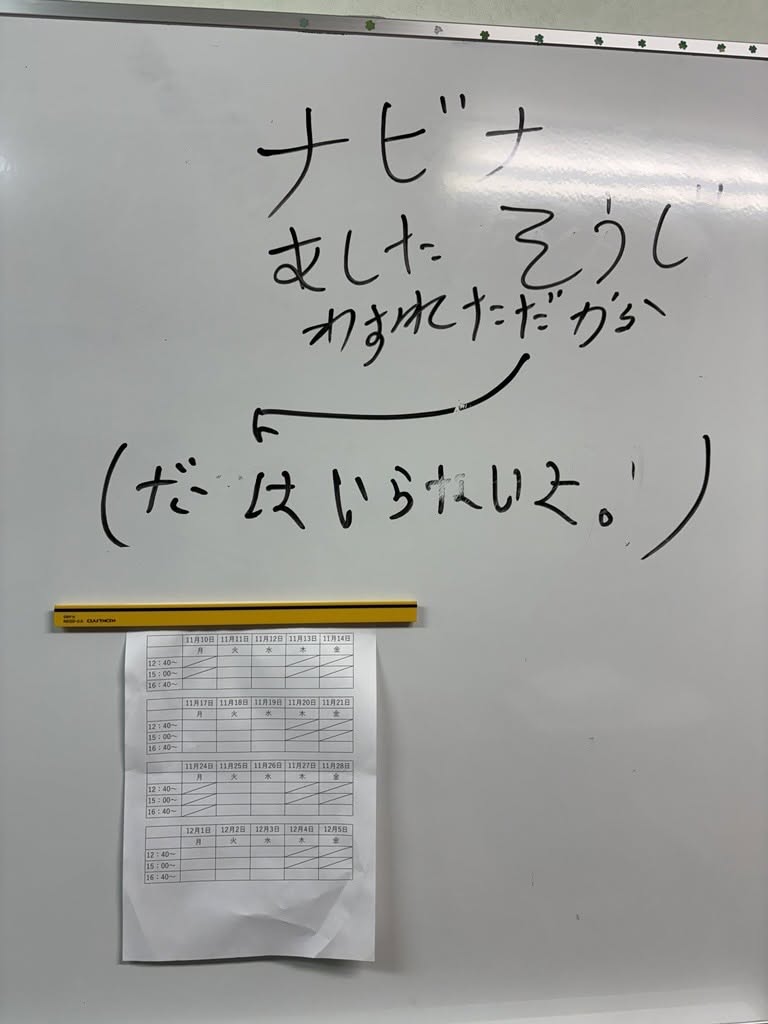 ナビナ
むした そうじ
わすれただから
(だ はいらないよ。)
11月10日 11月11日 11月12日 11月13日 11月14日
月 火 水 木 金
12:40~
15:00~
16:40~
11月17日 11月18日 11月19日 11月20日 11月21日
月 火 水 木 金
12:40~
15:00~
16:40~
11月24日 11月25日 11月26日 11月27日 11月28日
月 火 水 木 金
12:40~
15:00~
16:40~
12月1日 12月2日 12月3日 12月4日 12月5日
月 火 水 木 金
12:40~
15:00~
16:40~